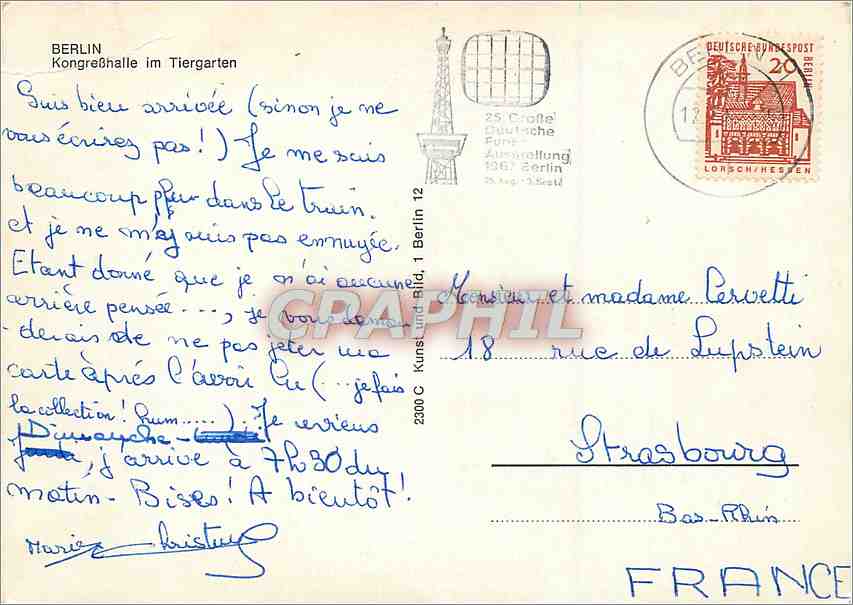 BERLIN
Kongreßhalle im Tiergarten
Suis bien arrivée (sinon je ne
vous écrirez pas!) Je me suis
beaucoup plu dans le train.
et je ne m'y suis pas ennuyée.
Etant donné que je n'ai aucune
arrière pensée..., je vous deman
-derais de ne pas jeter ma
carte après l'avoir lu (...je fais
la collection! hum.....). Je reviens
Dimanche-
, j'arrive à 7h30 du
matin- Bises! A bientôt!
Marie Christine
2300 C Kunst und Bild, 1 Berlin 12
25. Große
Deutsche
Funk-
Ausstellung
1967 Berlin
25. Aug.-3. Sept.
BERLIN
12
DEUTSCHE BUNDESPOST
BERLIN
20
LORSCH/HESSEN
Monsieur et madame Cervetti
18 rue de Lupstein
Strasbourg
Bas-Rhin
FRANCE
CPAPHIL